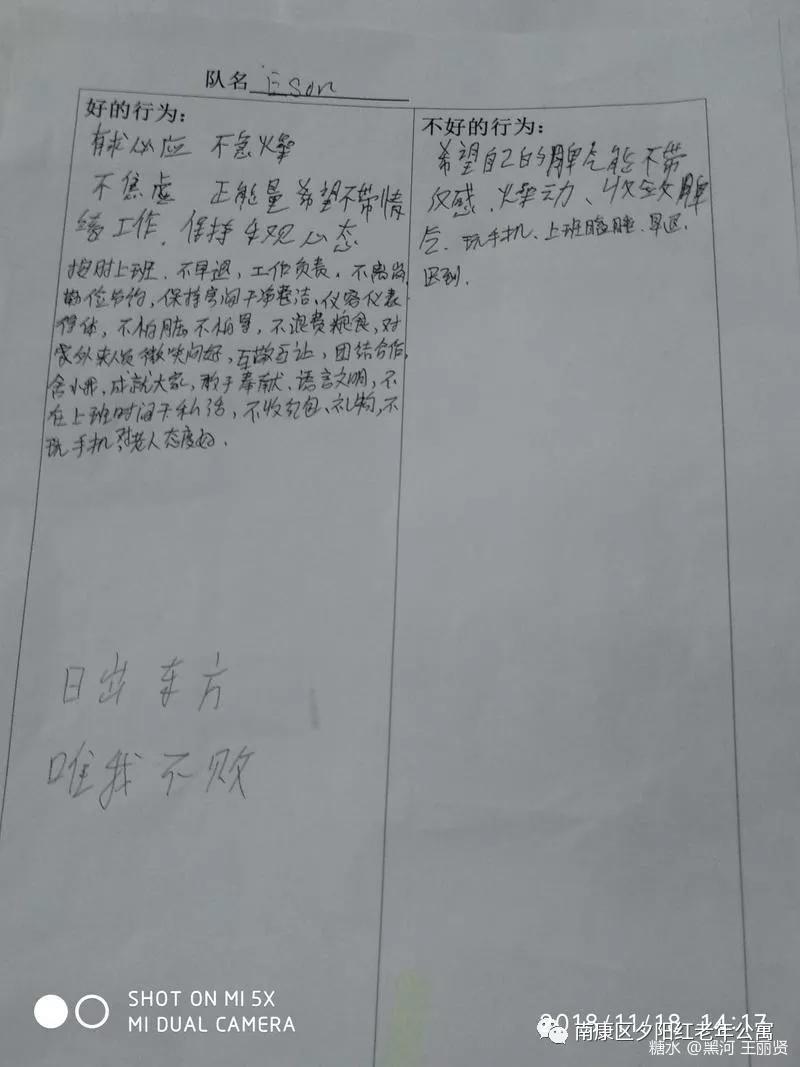 队名 Eson
好的行为：
有求必应 不急燥
不焦虑 正能量 希望不带情
绪工作、保持乐观心态
按时上班、不早退，工作负责，不离岗
勤俭节约，保持房间干净整洁、仪容仪表
得体，不怕脏不怕累，不浪费粮食，对
家外来人员微笑问好，互敬互让，团结合作，
舍小我，成就大家，敢于奉献、语言文明，不
在上班时间干私活，不收红包、礼物，不
玩手机 对老人态度好．
日出东方
唯我不败
不好的行为：
希望自己的脾气能不带
仪感、燥动、收敛脾
气、玩手机、上班瞌睡、早退、
迟到．
SHOT ON MI 5X
MI DUAL CAMERA
2018/11/18 14:17
南康区夕阳红老年公寓
糖水 @黑河 王丽贤